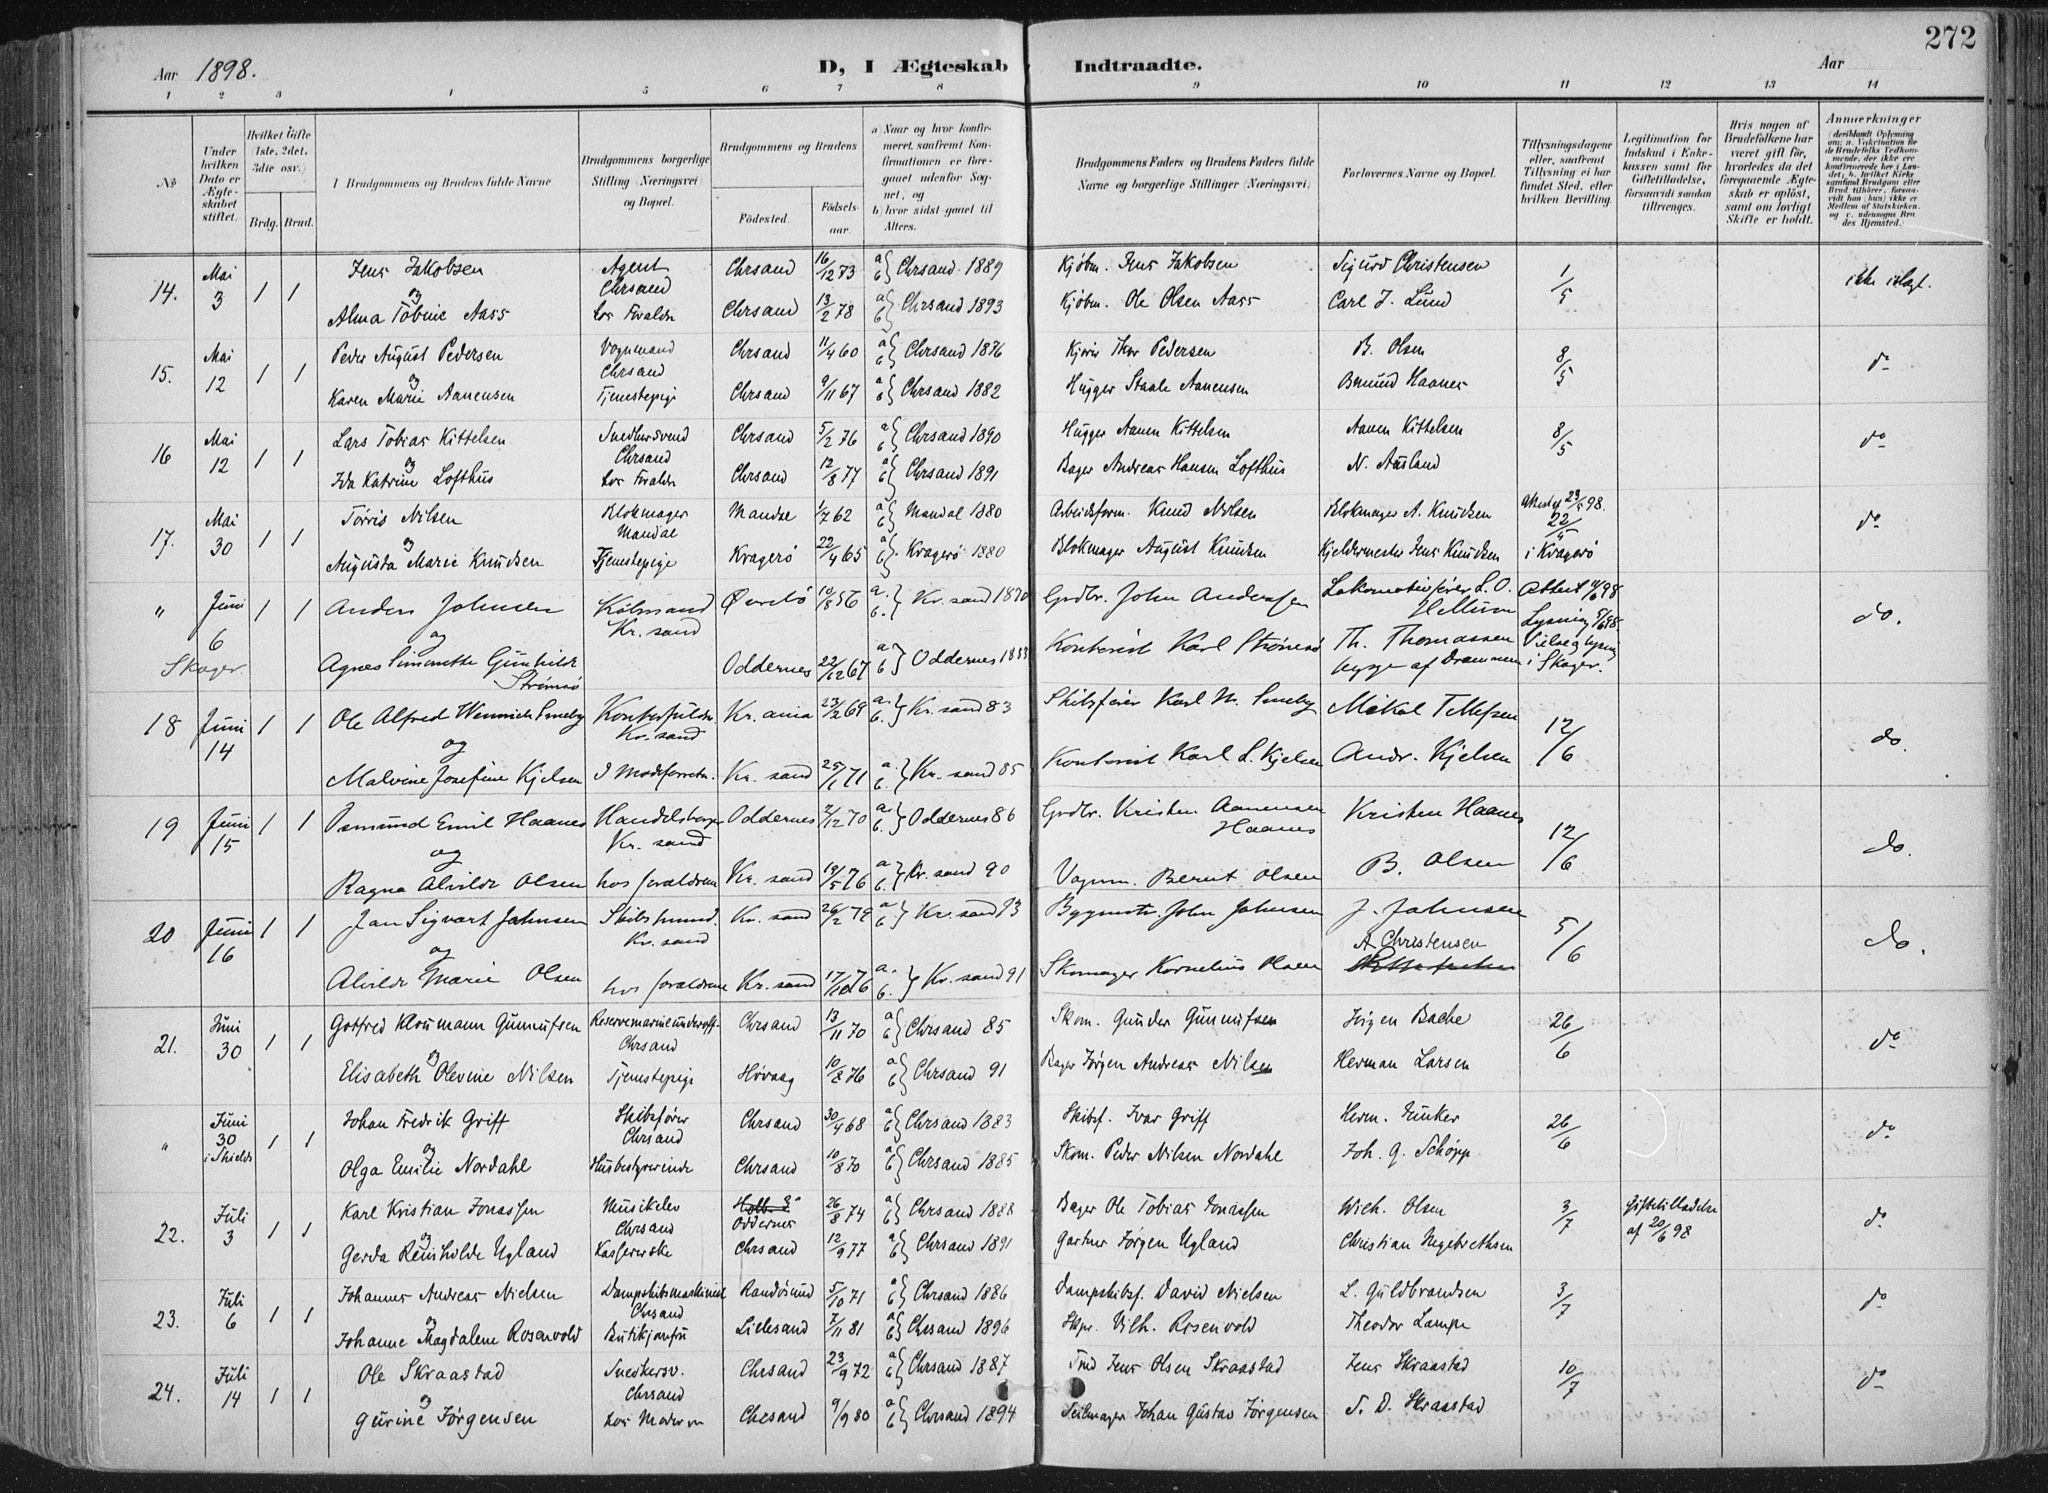 272
Aar 1898. D, I Ægteskab Indtraadte. Aar
1 2 3 4 5 6 7 8 9 10 11 12 13 14
No
Under hvilken Dato er Ægteskabet stiftet.
Hvilket Gifte (1ste, 2det, 3die osv.)
Brdg. Brud.
Brudgommens og Brudens fulde Navne
Brudgommens borgerlige Stilling (Næringsvei) og Bopæl.
Brudgommens og Brudens
Fødested. Fødselsaar.
a) Naar og hvor konfirmeret, saafremt Konfirmationen er foregaaet udenfor Sognet, og
b) hvor sidst gaaet til Alters.
Brudgommens Faders og Brudens Faders fulde Navne og borgerlige Stillinger (Næringsvei)
Forlovernes Navne og Bopæl.
Tillysningsdagene eller, saafremt Tillysning ei har fundet Sted, efter hvilken Bevilling.
Legitimation for Indskud i Enkekassen samt for Giftetilladelse, forsaavidt saadan tiltrænges.
Hvis nogen af Brudefolkene har været gift før, hvorledes da det foregaaende Ægteskab er opløst, samt om lovligt Skifte er holdt.
Anmerkninger (deriblandt Oplysning om: a. Vakcination for de Brudefolks Vedkommende, der ikke ere konfirmerede her i Landet; b. hvilket Kirkesamfund Brudgom eller Brud tilhører, forsaavidt han (hun) ikke er Medlem af Statskirken, og c. udensogns Brudes Hjemsted.
14. Mai 3 1 1 Jens Jakobsen Agent Chrsand Chrsand 16/12 73 a b } Chrsand 1889 Kjøbm. Jens Jakobsen Sigurd Christensen 1/5
og
Alma Tobine Aass hos Foraldr Chrsand 13/2 78 a b } Chrsand 1893 Kjøbm. Ole Olsen Aass Carl J. Lund
15. Mai 12 1 1 Peder August Pedersen Vognmand Chrsand Chrsand 11/4 60 a b } Chrsand 1876 Thor Pedersen B. Olsen 8/5 do
og
Karen Marie Aanensen Tjenestepige Chrsand 9/11 67 a b } Chrsand 1882 Hugger Staale Aanensen Osmund Haanes
16 Mai 12 1 1 Lars Tobias Kittelsen Snedkersvend Chrsand Chrsand 5/2 76 a b } Chrsand 1890 Hugger Aanen Kittelsen Aanen Kittelsen 8/5 do
og
Ida Katrine Lofthus hos Foraldr Chrsand 12/8 77 a b } Chrsand 1891 Bager Andreas Hansen Lofthus N. Ausland
17. Mai 30 1 1 Tørris Nilsen Blokmager Mandal Mandal 1/7 62 a b } Mandal 1880 Arbeidsform. Knud Nilsen Blokmager A. Knudsen Attest af 23/5 98.
og
Augusta Marie Knudsen Tjenestepige Kragerø 22/4 65 a b } Kragerø 1880 Blokmager August Knudsen Kjeldermester Jens Knudsen 22/5 i Kragerø do
" Juni 6 Skoger 1 1 Anders Johnsen Kr. sand Øvrebø 10/8 56 a. b. } Kr. sand 1870 Grdbr. John Andersen Lokomotivfører L. O. Hellum Attest 98 do.
og
Agnes Simonette Gunhilde Strømsø Oddernes 22/12 67 a b } Oddernes 1883 Kontorist Karl Strømsø Th. Thomassen begge af Drammen Lysning 5/6 98. i Skoger.
18 Juni 14 1 1 Ole Alfred Smeby Kr. sand Kr. ania 23/2 69 a. b. } Kr. sand 83 Skibsfører Karl N. Smeby Mikal Tellefsen 12/6 do.
og
Malvine Josefine Kjelsen I Modeforretn. Kr. sand 25/1 71 a. b. } Kr. sand 85 Kontorist Karl L. Kjelsen Andr. Kjelsen
19 Juni 15 1 1 Osmund Emil Haanes Handelsborger Kr. sand Oddernes 2/12 70 a. b. } Oddernes 86 Grdbr. Kristen Aanensen Haanes Kristen Haanes 12/6 do.
og
Ragna Alvilde Olsen hos forældrene Kr. sand 19/5 76 a. b. } Kr. sand 90 Vognm. Bernt Olsen B. Olsen
20 Juni 16 1 1 Jan Sigvart Jahnsen Skibstømmd. Kr. sand Kr. sand 26/2 79 a. b. } Kr. sand 93 Bygmstr. John Jahnsen J. Jahnsen 5/6 do.
og
Alvilde Marie Olsen hos forældrene Kr. sand 17/10 76 a. b. } Kr. sand 91 Skomager Kornelius Olsen A Christensen
21. Juni 30 1 1 Gotfred Kloumann Gunnufsen Reservemarineunderoff. Chrsand Chrsand 13/11 70 a b } Chrsand 85 Skom. Gunder Gunnufsen Jørgen Bache 26/6 do
og
Elisabeth Olevine Nilsen Tjenestepige Høvaag 10/8 76 a b } Chrsand 91 Bager Jørgen Andreas Nilsen Herman Larsen
" Juni 30 i Shields 1 1 Johan Fredrik Griff Skibsfører Chrsand Chrsand 30/4 68 a b } Chrsand 1883 Skibsf. Ivar Griff Herm. Junker 26/6 do
og
Olga Emilie Nordahl Husbestyrerinde Chrsand 10/8 70 a b } Chrsand 1885 Skom. Peder Nilsen Nordahl Joh. G. Schøpp
22. Juli 3 1 1 Karl Kristian Jonassen Musikelev Chrsand Oddernes 26/8 74 a b } Chrsand 1888 Bager Ole Tobias Jonassen Wilh. Olsen 3/7 Giftetilladelse af 20/6 98 do
og
Gerda Reinholde Ugland Kassererske Chrsand 12/9 77 a b } Chrsand 1891 Gartner Jørgen Ugland Christian Ingebrethsen
23. Juli 6 1 1 Johannes Andreas Nielsen Dampskibsmaskinist Chrsand Randøsund 5/10 71 a b } Chrsand 1886 Dampskibsf. David Nielsen L. Guldbrandsen 3/7 do
og
Johanne Magdalene Rosenvold Butikjomfru Lillesand 7/11 81 a b } Chrsand 1896 Skpr. Vilh. Rosenvold Theodor Lampe
24. Juli 14 1 1 Ole Skraastad Snedkersv. Chrsand Chrsand 23/9 72 a b } Chrsand 1887 Jens Olsen Skraastad Jens Skraastad 10/7 do
og
Gurine Jørgensen hos Moderen Chrsand 9/9 80 a b } Chrsand 1894 Seilmager Johan Gustav Jørgensen S. D. Skraastad